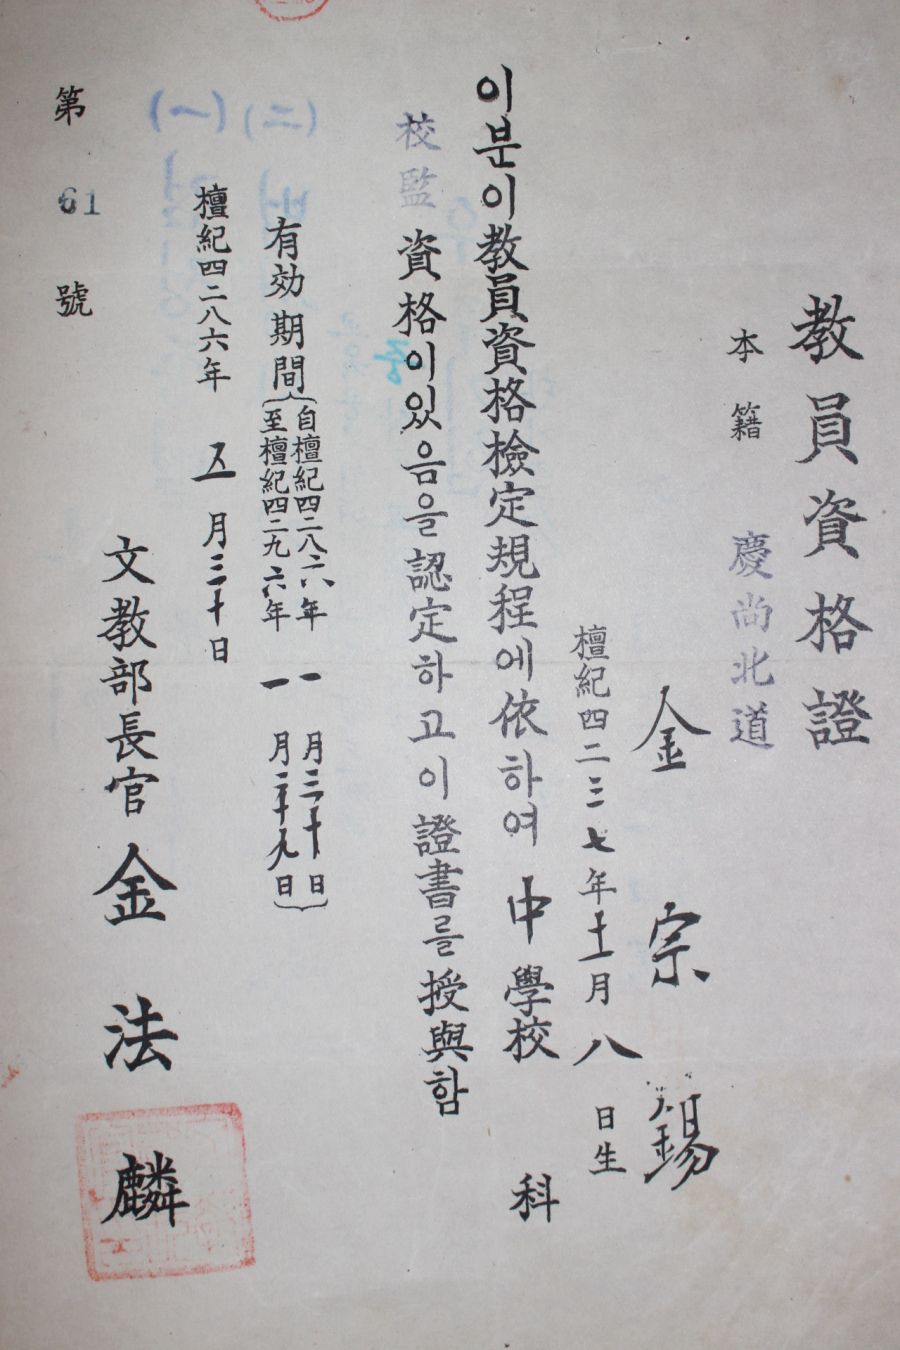 教員資格證
本籍 慶尚北道
金宗錫
檀紀四二三七年十一月八日生
이분이教員資格檢定規程에依하여 中學校 科
校監資格이있음을認定하고이證書를授與함
有効期間
自檀紀四二八六年一月三十日
至檀紀四二九六年一月二十九日
檀紀四二八六年五月三十日
文教部長官 金法麟
第61號